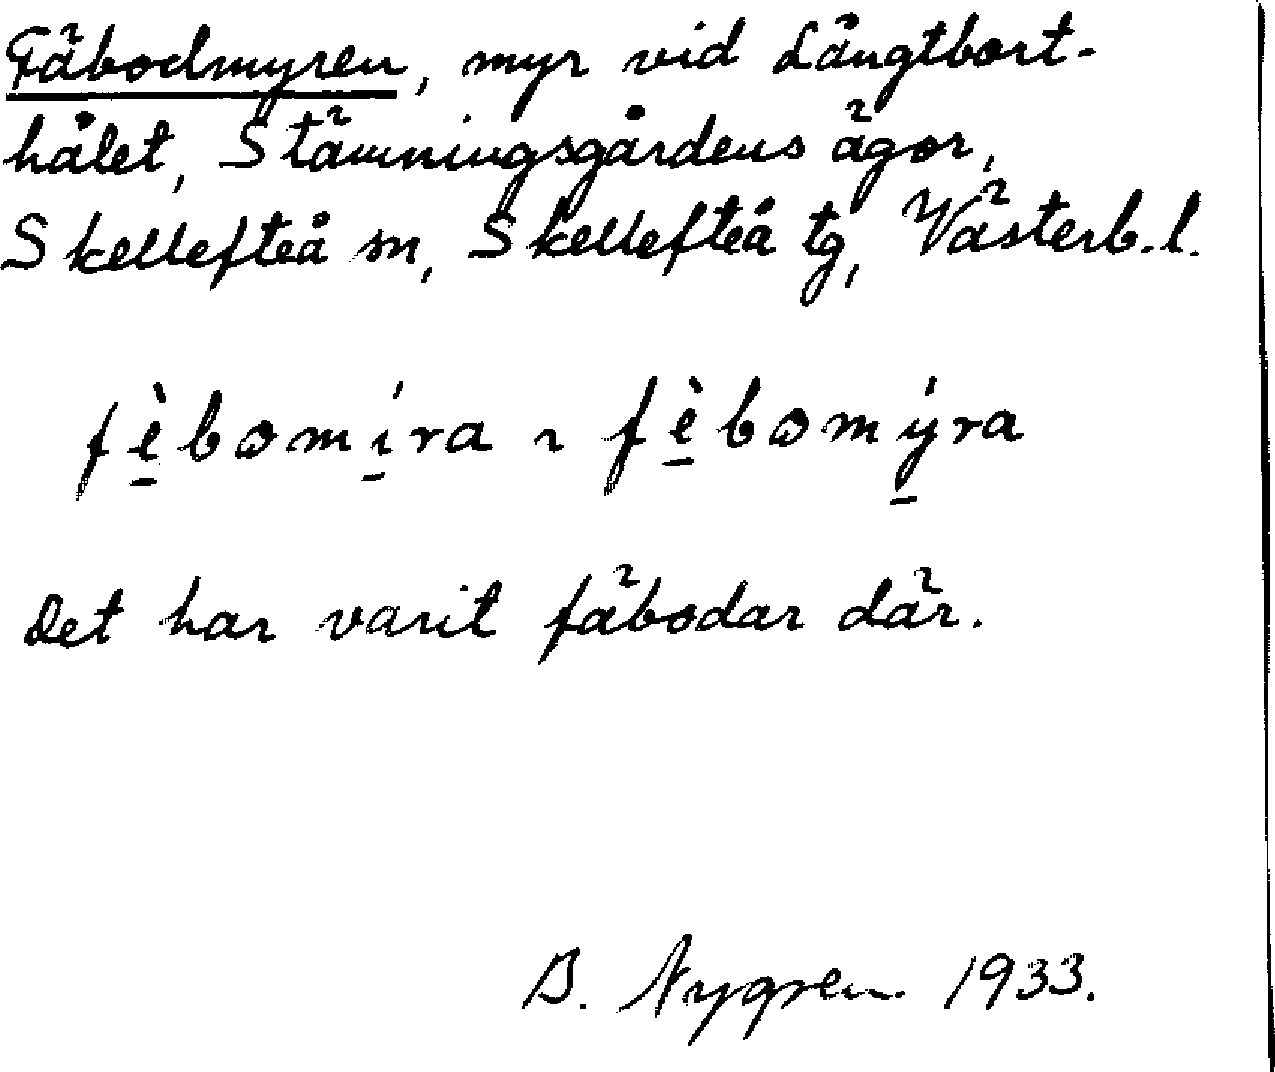 Fäbodmyren, myr vid Långtbort-
hålet, Stämningsgårdens ägor,
Skellefteå sn, Skellefteå tg, Västerb. l.
fè̱bomí̱ra ~ fè̱bomý̱ra
Det har varit fäbodar där.
B. Nygren 1933.